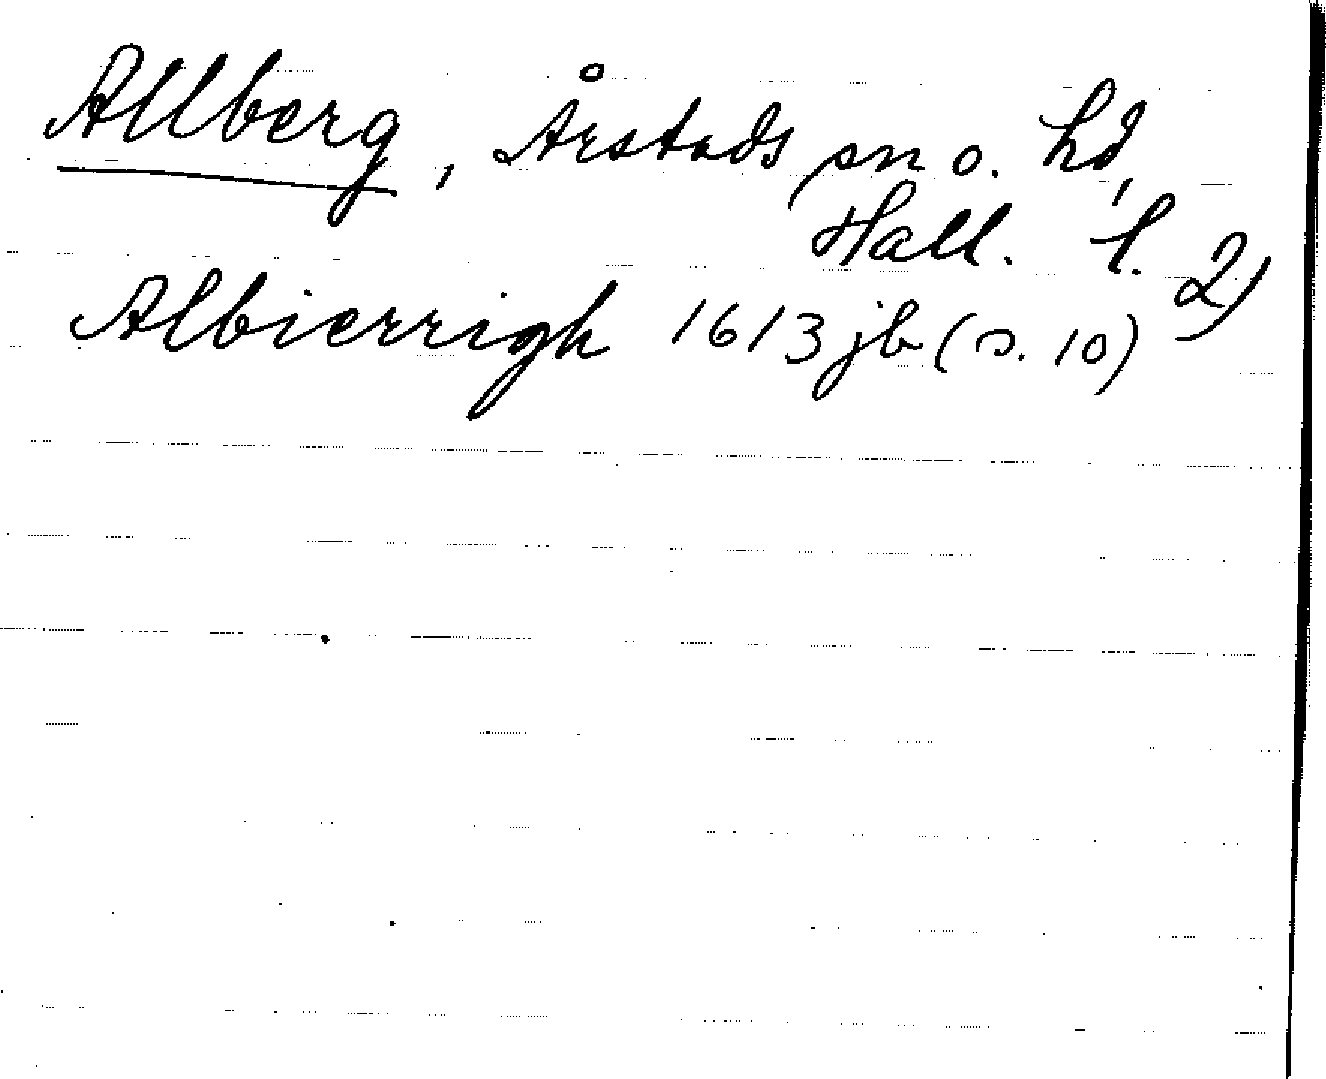 Allberg, Årstads sn o. hd,
Hall. l. 2)
Albierrigh 1613 jb (s. 10)